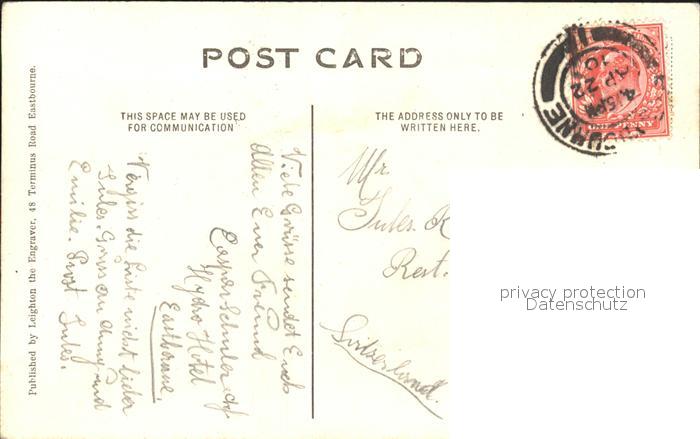 POST CARD
THIS SPACE MAY BE USED
FOR COMMUNICATION
THE ADDRESS ONLY TO BE
WRITTEN HERE.
Published by Leighton the Engraver, 48 Terminus Road Eastbourne.
Viele Grüsse sendet Euch
allen Euer Freund
Caspar
Hydro Hotel
Eastbourne.
Vergiss die Liste nicht lieber
Jules. Gruss an und
Emilie. Prost Jules.
Mr.
Jules. K
Rest.
Switzerland.
BOURNE
4.5PM
AP 22
10
ONE PENNY
privacy protection
Datenschutz